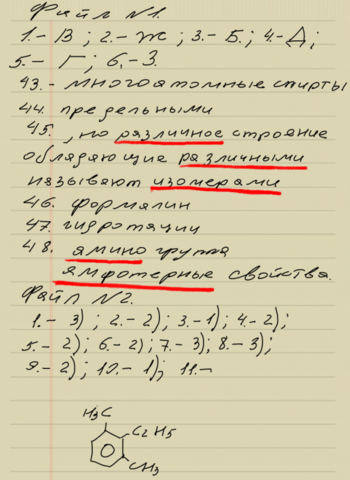 Файл №1.
1.- В ; 2.- Ж ; 3.- Б ; 4.- Д ;
5.- Г ; 6.- З.
43.- многоатомные спирты
44. предельными
45. , но различное строение
обладающие различными
называют изомерами
46. формалин
47. гидротации
48. амино группа
амфотерные свойства.
Файл №2.
1.- 3) ; 2.- 2) ; 3.- 1) ; 4.- 2) ;
5.- 2) ; 6.- 2) ; 7.- 3) ; 8.- 3) ;
9.- 2) ; 10.- 1) ; 11.-
H3C
C2H5
CH3